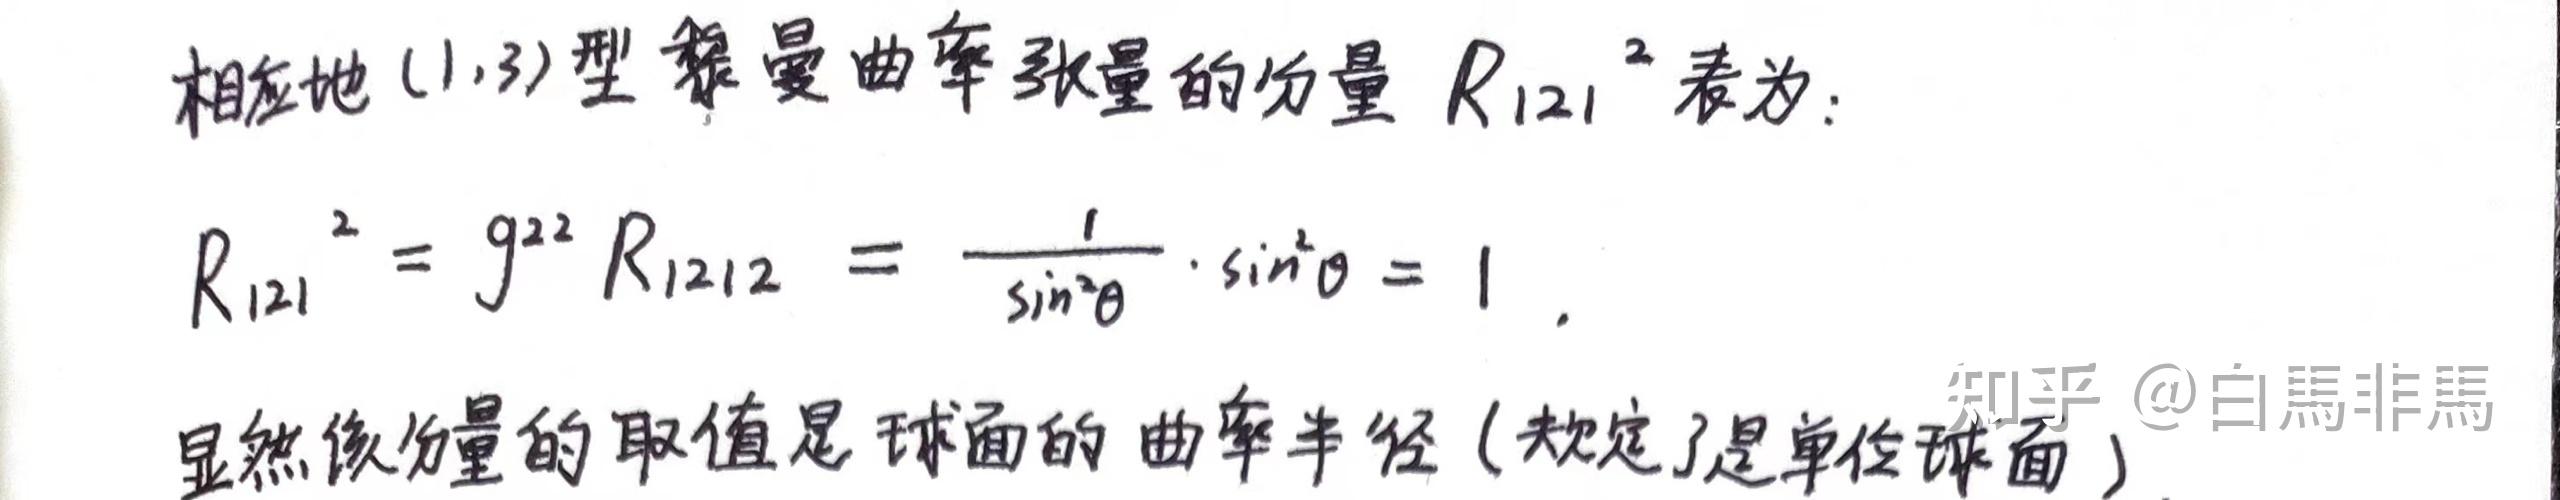 相应地(1,3)型黎曼曲率张量的分量 R₁₂₁² 表为:
R₁₂₁² = g²² R₁₂₁₂ = 1/sin²θ · sin²θ = 1 .
显然该分量的取值是球面的曲率半径(规定了是单位球面)
知乎 @白馬非馬